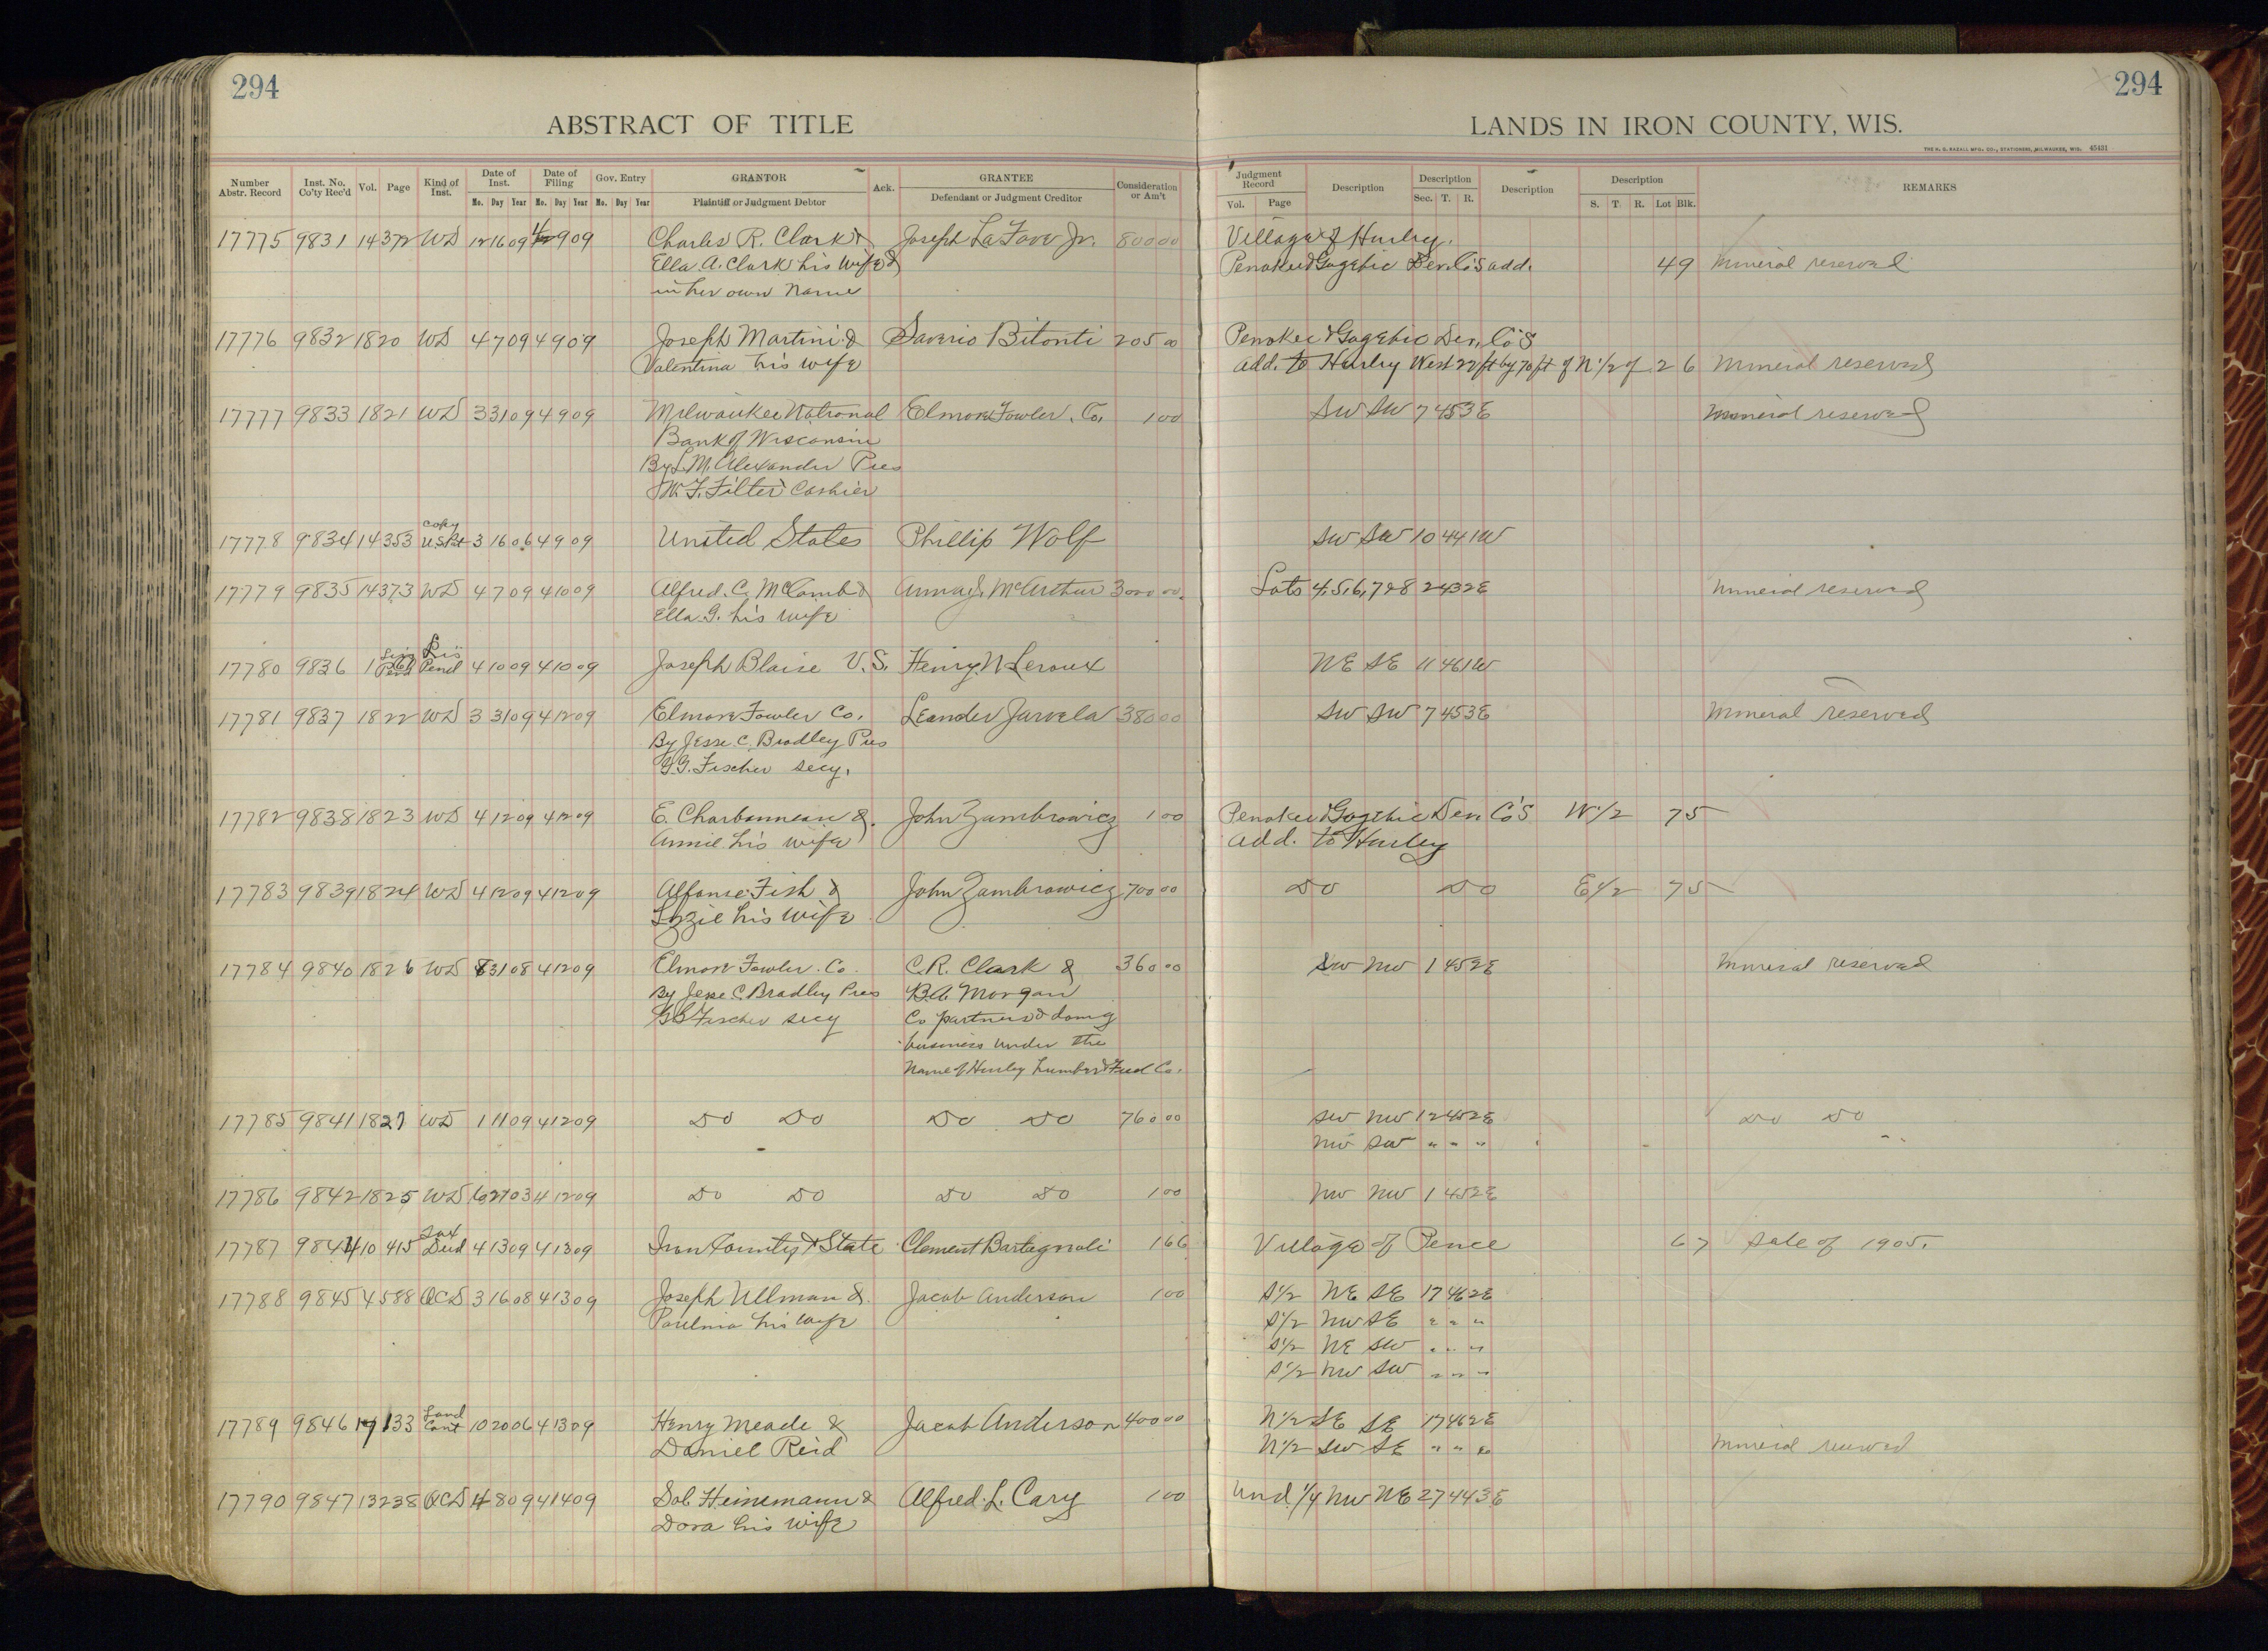 294
294
ABSTRACT OF TITLE
LANDS IN IRON COUNTY, WIS.
THE H. G. RAZALL MFG. CO., STATIONERS, MILWAUKEE, WIS. 45431
Number Abstr. Record Inst. No. Co'ty Rec'd Vol. Page Kind of Inst. Date of Inst. Mo. Day Year Date of Filing Mo. Day Year Gov. Entry Mo. Day Year GRANTOR Plaintiff or Judgment Debtor Ack. GRANTEE Defendant or Judgment Creditor Consideration or Am't
Judgment Record Vol. Page Description Description Sec. T. R. Description Description S. T. R. Lot Blk. REMARKS
17775 9831 14 372 WD 12 16 09 9 09 Charles R. Clark & Joseph LaFave Jr. 800 00 Village of Hurley.
Ella A. Clark his wife & Penokee & Gogebic Dev. Co's add. 49 Mineral reserved
in her own name
17776 9832 18 20 WD 4 7 09 4 9 09 Joseph Martini & Saverio Bitonti 205 00 Penokee & Gogebic Dev. Co's
Valentina his wife Add. to Hurley West 22 ft by 70 ft of N 1/2 of 2 6 Mineral reserved
17777 9833 18 21 WD 3 31 09 4 9 09 Milwaukee National Elmore Fowler Co. 1 00 SW SW 7 45 3E Mineral reserved
Bank of Wisconsin
By L.M. Alexander Pres
W.F. Filter Cashier
17778 9834 14 353 Copy U.S. Pat 3 16 06 4 9 09 United States Phillip Wolf SW SW 10 44 1W
17779 9835 14 373 WD 4 7 09 4 10 09 Alfred. C. McComb & Anna J. McArthur 3000 00 Lots 4,5,6,7 & 8 2 43 2E Mineral reserved
Ella G. his wife
17780 9836 1 Lis Pend Lis Pend 4 10 09 4 10 09 Joseph Blaise V.S. Henry N Leroux NE SE 11 46 1W
17781 9837 18 22 WD 3 31 09 4 12 09 Elmore Fowler Co. Leander Jarvela 380 00 SW SW 7 45 3E Mineral reserved
By Jesse C. Bradley Pres
G.G. Fischer Secy.
17782 9838 18 23 WD 4 12 09 4 12 09 E. Charbonneau & John Zambrowicz 1 00 Penokee & Gogebic Dev. Co's W 1/2 75
Annie his wife Add. to Hurley
17783 9839 18 24 WD 4 12 09 4 12 09 Alfonse Fish & John Zambrowicz 700 00 Do Do E 1/2 75
Lizzie his wife
17784 9840 18 26 WD 8 31 08 4 12 09 Elmore Fowler Co. C.R. Clark & 360 00 SW NW 1 45 2E Mineral reserved
By Jesse C. Bradley Pres B.A. Morgan
G G Fischer Secy Co partners & doing
business under the
Name of Hurley Lumber & Fuel Co.
17785 9841 18 27 WD 1 11 09 4 12 09 Do Do Do Do 760 00 SW NW 12 45 2E Do Do
NW SW " " "
17786 9842 18 25 WD 6 27 03 4 12 09 Do Do Do Do 1 00 NW NW 1 45 2E
17787 9844 10 415 Tax Deed 4 13 09 4 13 09 Iron County & State Clement Bartagnoli 1 66 Village of Pence 6 7 Sale of 1905.
17788 9845 4 588 QCD 3 16 08 4 13 09 Joseph Ullman & Jacob Anderson 1 00 S 1/2 NE SE 17 46 2E
Paulina his wife S 1/2 NW SE " " "
S 1/2 NE SW " " "
S 1/2 NW SW " " "
17789 9846 133 Land Cont 10 20 06 4 13 09 Henry Meade & Jacob Anderson 400 00 N 1/2 SE SE 17 46 2E
Daniel Reid N 1/2 SW SE " " " Mineral reserved
17790 9847 13 238 QCD 4 8 09 4 14 09 Sol. Heinemann & Alfred L. Cary 1 00 Und. 1/4 NW NE 27 44 3E
Dora his wife